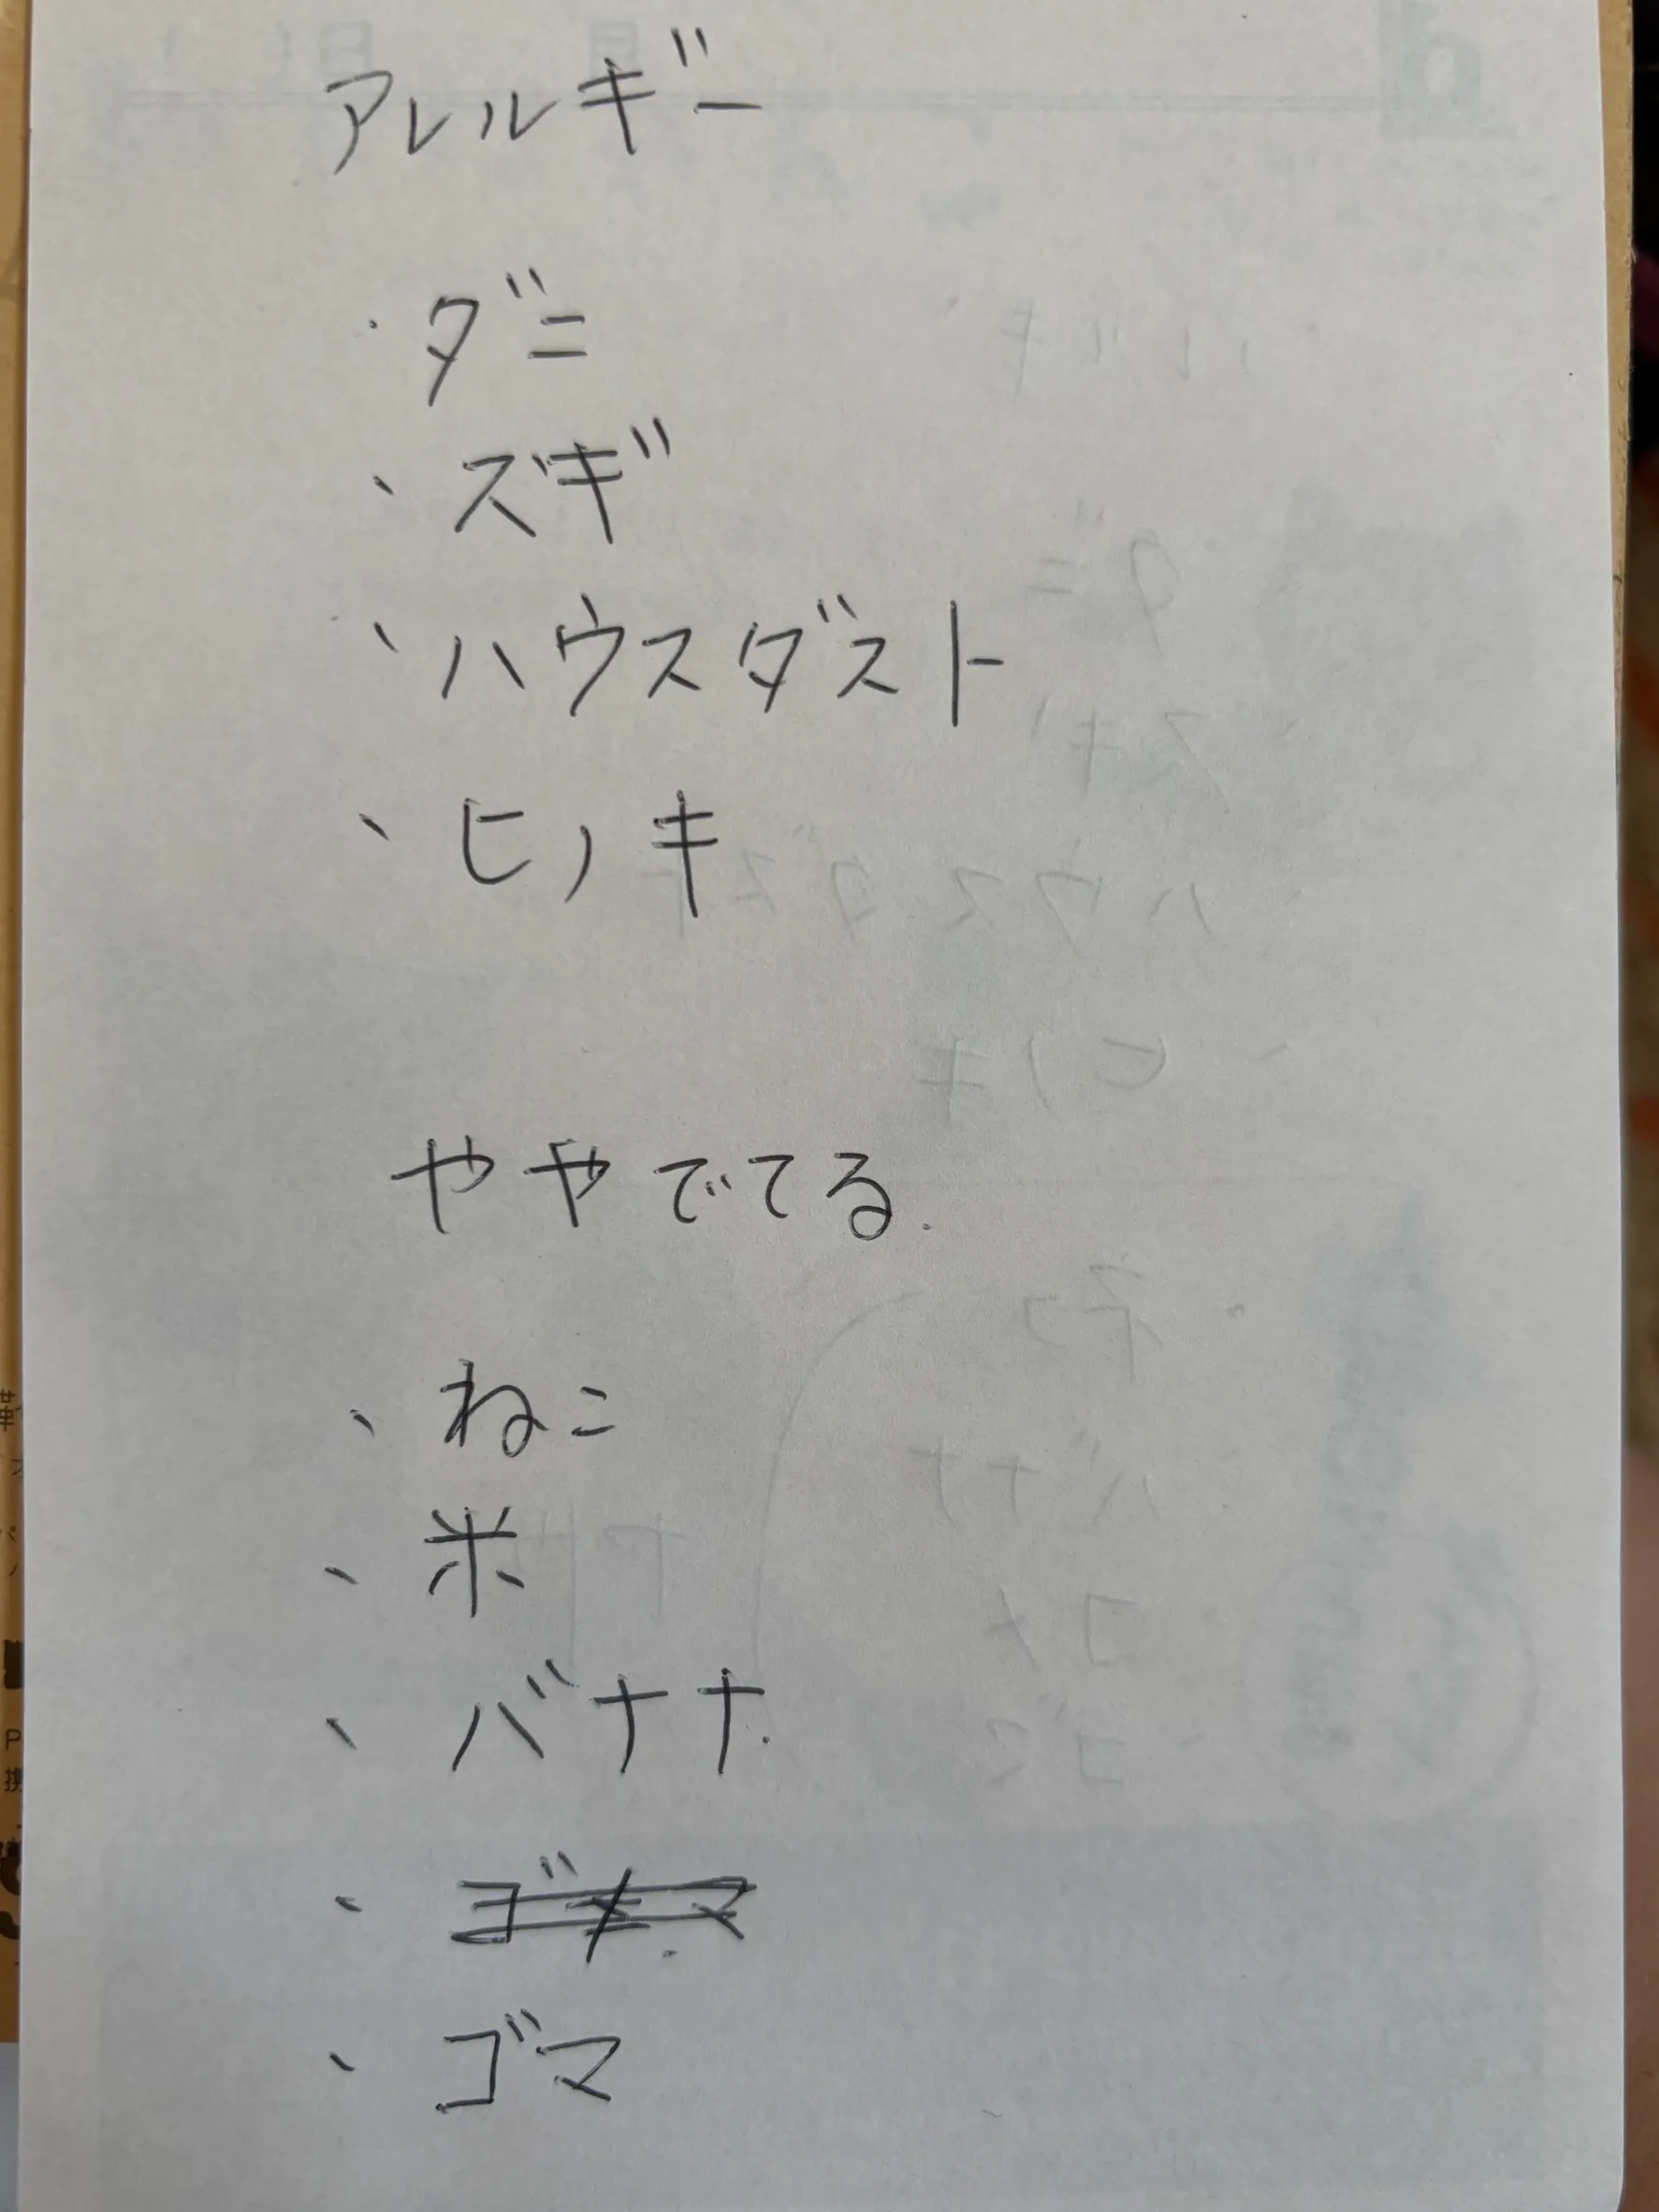 アレルギー
・ダニ
・スギ
・ハウスダスト
・ヒノキ
ややでてる.
・ねこ
・米
・バナナ.
・ゴマ